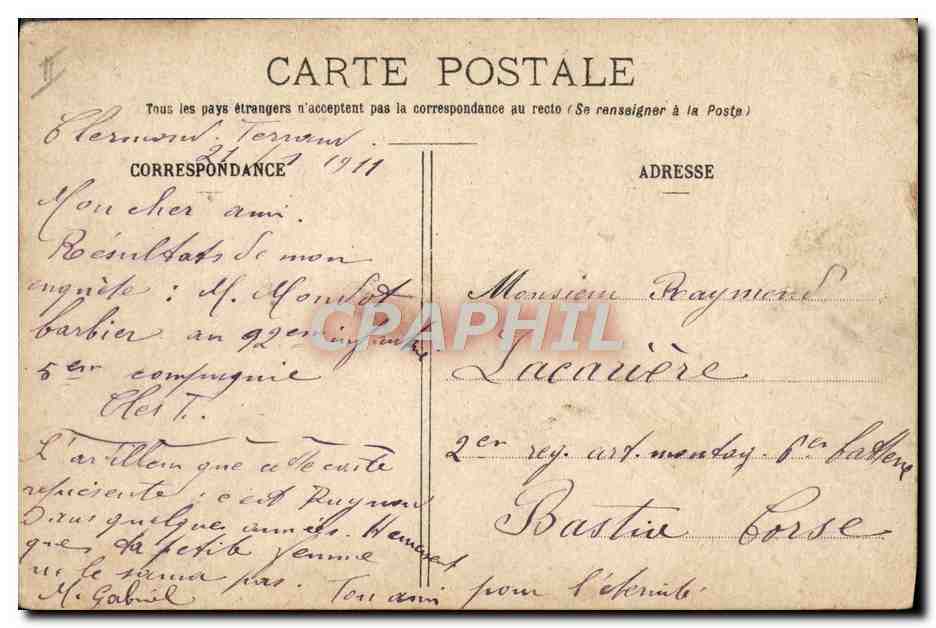 CARTE POSTALE
Tous les pays étrangers n'acceptent pas la correspondance au recto (Se renseigner à la Poste)
Clermond. Ferrand
21 1911
CORRESPONDANCE
Mon cher ami.
Résultats de mon
enquête : M. Mondot
barbier au 92em infanterie
5em compagnie
Cles F.
L'artilleur que cette carte
représente : c'est Raymon
Dans quelques années. Heureusement
que ta petite femme
ne le saura pas.
M. Gabriel Ton ami pour l'éternité
ADRESSE
Monsieur Raymond
Lacarrière
2er reg. art. montag. 6er batterie
Bastia Corse
CPAPHIL